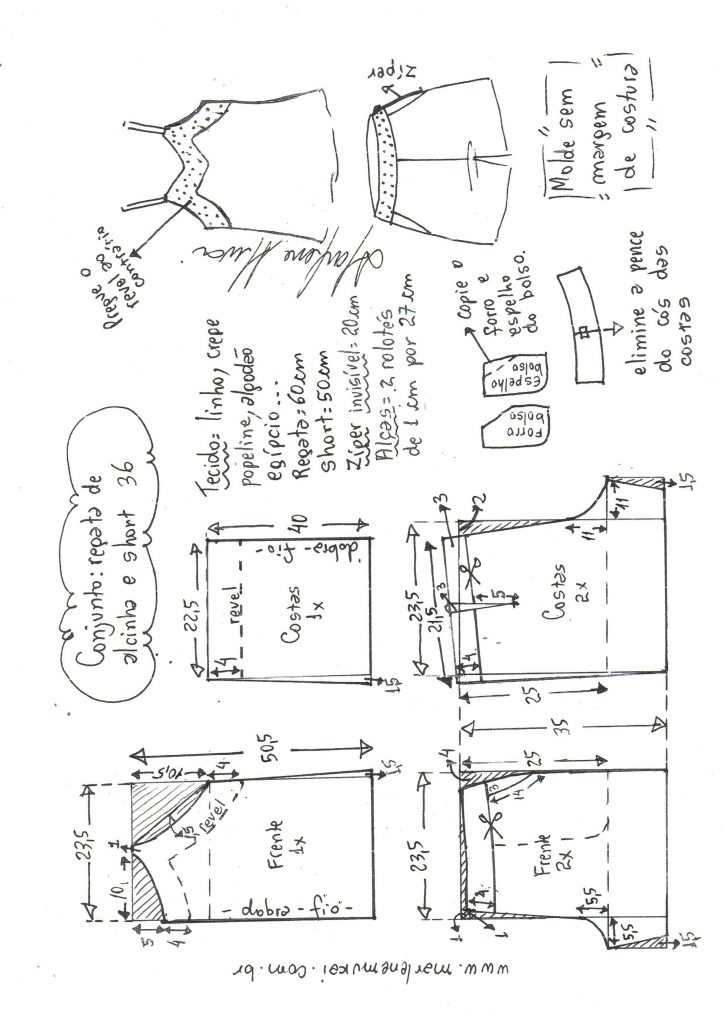 Conjunto: regata de
alcinha e short 36
Pregue o
revel ao
contrário
zíper
Molde sem
margem
de costura
Tecido: linho, crepe
popeline, algodão
egípcio...
Regata: 60cm
Short: 50cm
Zíper invisível: 20cm
Alças = 2 rolotés
de 1 cm por 27cm
copie o
forro e
espelho
do bolso.
Espelho
bolso
Forro
bolso
elimine a pence
do cós das
costas
22,5
40
4
revel
Costas
1x
dobra-fio-
1,5
23,5
10
1
10,5
50,5
5
4
15
4
revel
Frente
1x
-fio-dobra-
1,5
23,5
21,5
3
2
3
4
5
Costas
2x
11
11
25
1,5
35
25
23,5
4
3
14
4
1
1
Frente
2x
5,5
5,5
1,5
www.marlenemukai.com.br